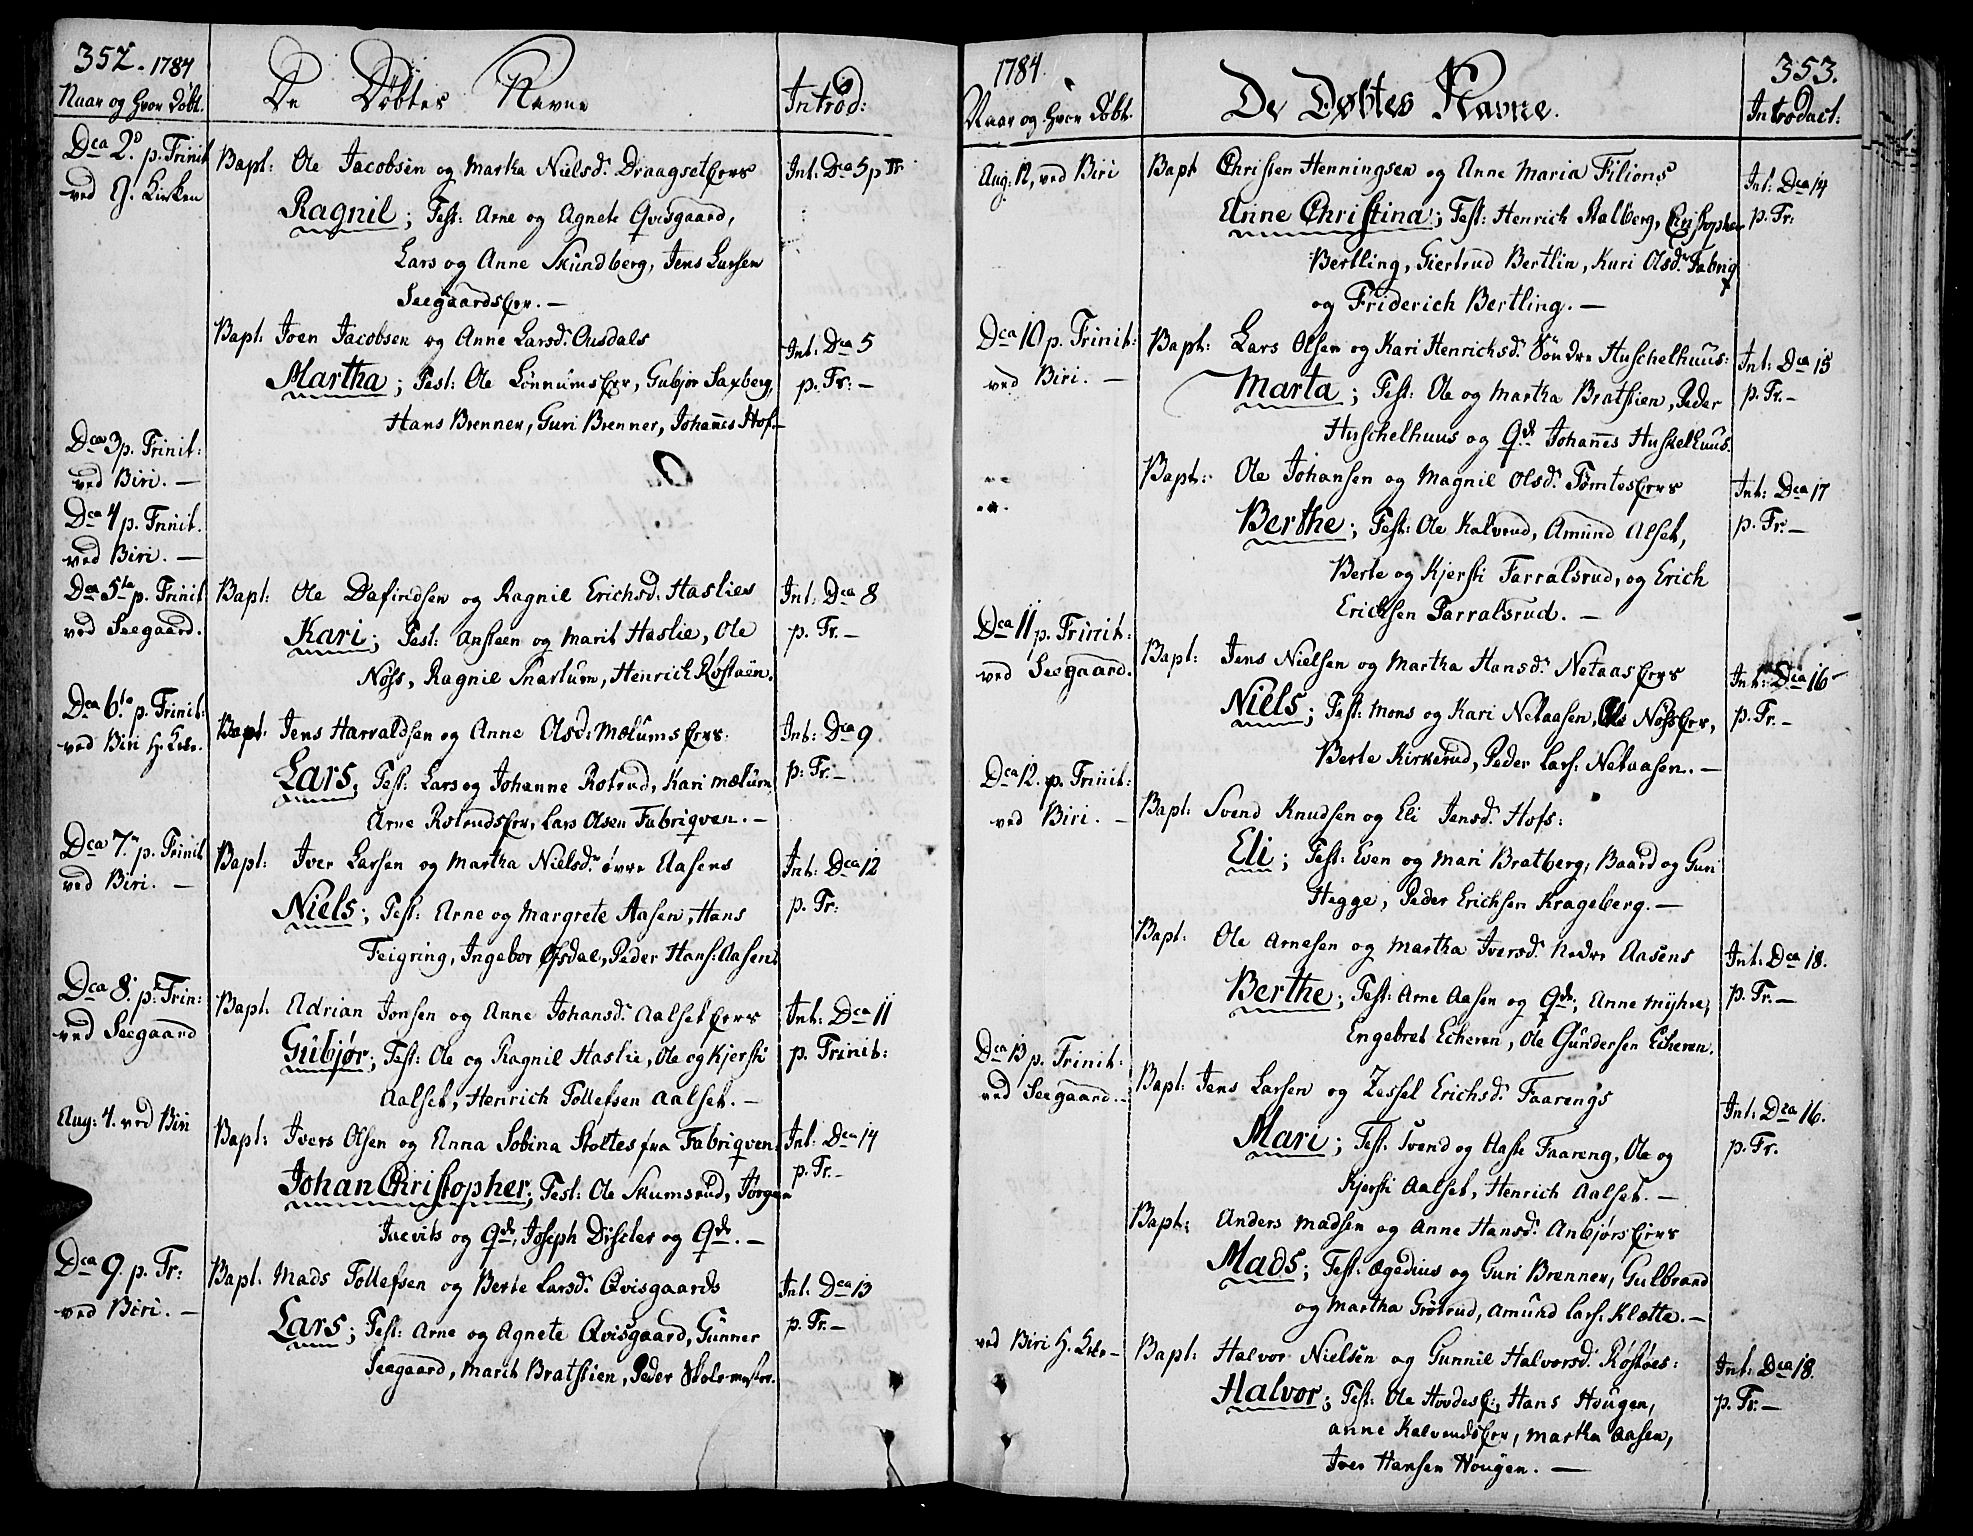 352. 1784
De Døbtes Navne
Introd:
Naar og hvor døbt.
Dca 2d p. Trinit
ved Kirken
Bapt: Ole Jacobsen og Martha Nielsd. Draagset
Int: Dca 5 p Tr.
Ragnil; Test: Arne og Agnete Qvisgaard,
Lars og Anne Skundberg, Jens Larsen
Bapt: Joen Jacobsen og Anne Larsd. Onsdals
Int: Dca 5
p. Tr: —
Martha; Test: Ole Lønnums Eyer, Gubjør Saxberg,
Hans Brenner, Guri Brenner, Johannes Hof. —
Dca 3 p. Trinit:
ved Biri. —
O.
Dca 4 p. Trinit.
ved Biri. —
Dca 5te p. Trinit
ved Seegaard.
Bapt: Ole Dafindsen og Ragnil Erichsd. Haslies
Int: Dca 8
p. Tr. —
Kari; Test: Ansteen og Marit Haslie, Ole
Nøss, Ragnil Snartum, Henrich Røstøen.
Dca 6te p. Trinit:
ved Biri H. Kirke.
Bapt Jens Harraldsen og Anne Olsd. Mælums
Int: Dca 9
p: Tr. —
Lars, Test: Lars og Johanne Rotrud, Kari Mælum
Arne Rotruds, Lars Olsen Fabriqven. —
Dca 7. p. Trinit
ved Biri. —
Bapt: Iver Larsen og Martha Nielsd. øvre Aasens
Int: Dca 12
p. Tr:
Niels; Test: Arne og Margrete Aasen, Hans
Feigring, Ingebor Ofsdal, Peder Hans: Aasen
Dca 8. p. Trin:
ved Seegaard
Bapt. Adrian Jonsen og Anne Johansd. Aalset
Int: Dca 11
p. Trinit:
Gubjør; Test: Ole og Ragnil Haslie, Ole og Kjersti
Aalset, Henrich Tollefsen Aalset. —
Aug: 4. ved Biri
Bapt: Ivers Olsen og Anna Sobina Stoltes fra Fabriqven
Int: Dca 14
p. Tr. —
Johan Christopher; Test: Ole Skumsrud, Jørgen
og Qde, Joseph Disc og Qde. —
Dca 9. p. Tr:
ved Biri. —
Bapt. Mads Tollefsen og Berte Larsd. Qvisgaards
Int. Dca 13
p. Tr. —
Lars; Test: Arne og Agnete Qvisgaard, Gunner
Seegaard, Marit Bratstien, Peder Skolemester.
1784.
353.
De Døbtes Navne.
Naar og hvor døbt.
Introduct:
Aug: 12, ved Biri
Bapt Christen Henningsen og Anne Maria Filions
Int: Dca 14
p. Tr:
Anne Christina; Test: Henrich Stalberg, Christopher
Bertling, Giertrud Bertlin, Kari Olsd. Fabriq
og Friderich Bertling. —
Dca 10 p. Trinit:
ved Biri. —
Bapt: Lars Olsen og Kari Henrichsd. Søndre Huschelhuus:
Int: Dca 15
p. Tr. —
Marta; Test: Ole og Martha Bratstien, Peder
Huschelhuus og Qde Johannes Huskelhuus.
Bapt: Ole Johansen og Magnil Olsd. Tømtes
Int: Dca 17
p. Tr. —
Berthe; Test: Ole Kalvrud, Amund Alset,
Berte og Kjersti Farralsrud, og Erich
Erichsen Farralsrud. —
Dca 11 p. Trinit:
ved Seegaard.
Bapt: Jens Nielsen og Martha Hansd. Netaas
Int: Dca 16 —
p. Tr. —
Niels; Test: Mons og Kari Netaasen, Ole Nøss,
Berte Kirkerud, Peder Lars: Netaasen. —
Dca 12. p. Trinit:
ved Biri. —
Bapt: Svend Knudsen og Eli Jensd. Hofs:
Eli; Test: Even og Mari Bratberg, Baard og Guri
Hegge, Peder Erichsen Krageberg. —
Bapt. Ole Arnesen og Martha Iversd. Nedre Aasens
Int. Dca 18.
p. Tr. —
Berthe; Test: Arne Aasen og Qde, Anne Myhre,
Engebret Echeren, Ole Gundersen Echeren.
Dca 13 p. Trinit:
ved Seegaard. —
Bapt: Jens Larsen og Zessel Erichsd. Faarengs
Int: Dca 16.
p. Tr.
Mari; Test: Svend og Aaste Faareng, Ole og
Kjersti Aalset, Henrich Aalset. —
Bapt: Anders Madsen og Anne Hansd. Anbjørs
Mads; Test: Ægedius og Guri Brenner, Gulbrand
og Martha Grøtrud, Amund Lars: Klætte. —
ved Biri H. Kirke —
Bapt: Halvor Nielsen og Gunnil Halvorsd. Røstøes:
Int: Dca 18.
p. Tr —
Halvor; Test: Ole Hovdes, Hans Hougen,
Anne Kalveruds, Martha Aasen,
Iver Hansen Hougen. —